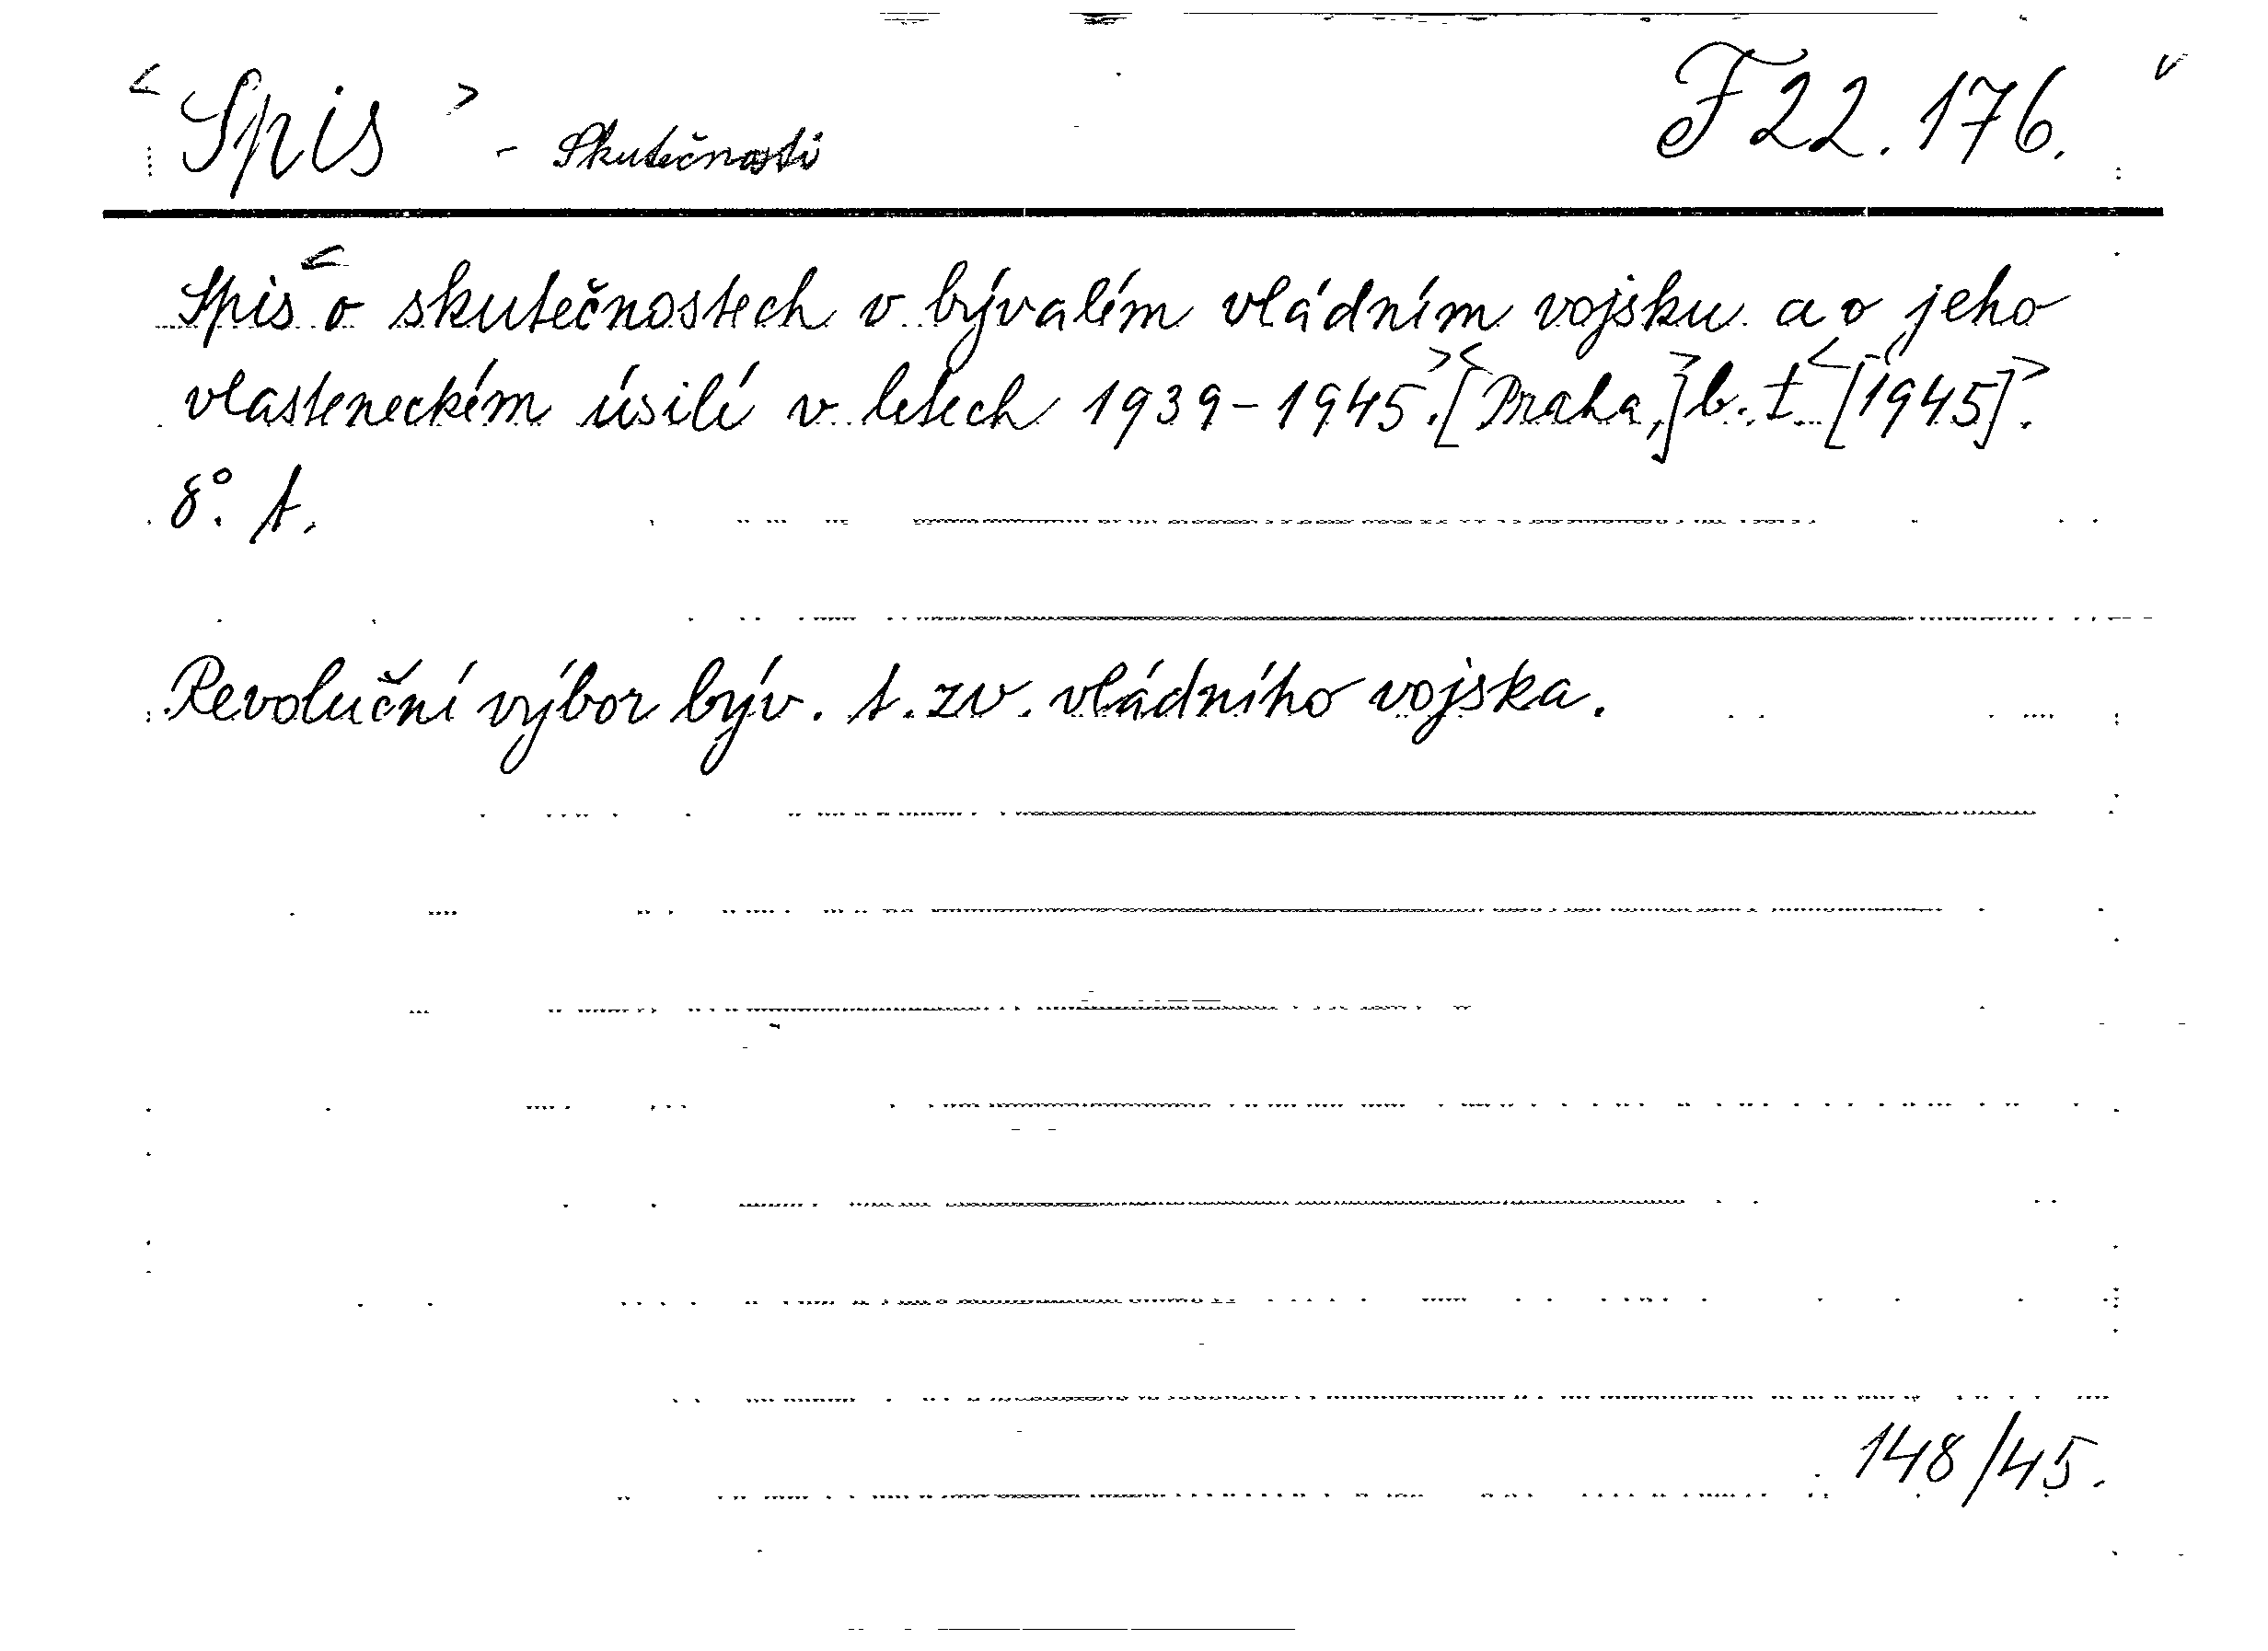 <Spis> - Skutečnosti F 22.176. v
Spis < o skutečnostech v bývalém vládním vojsku a o jeho
vlasteneckém úsilí v letech 1939-1945.> <[Praha,]> b. t. <[1945]>.
8°. t.
Revoluční výbor býv. t. zv. vládního vojska.
148/45.